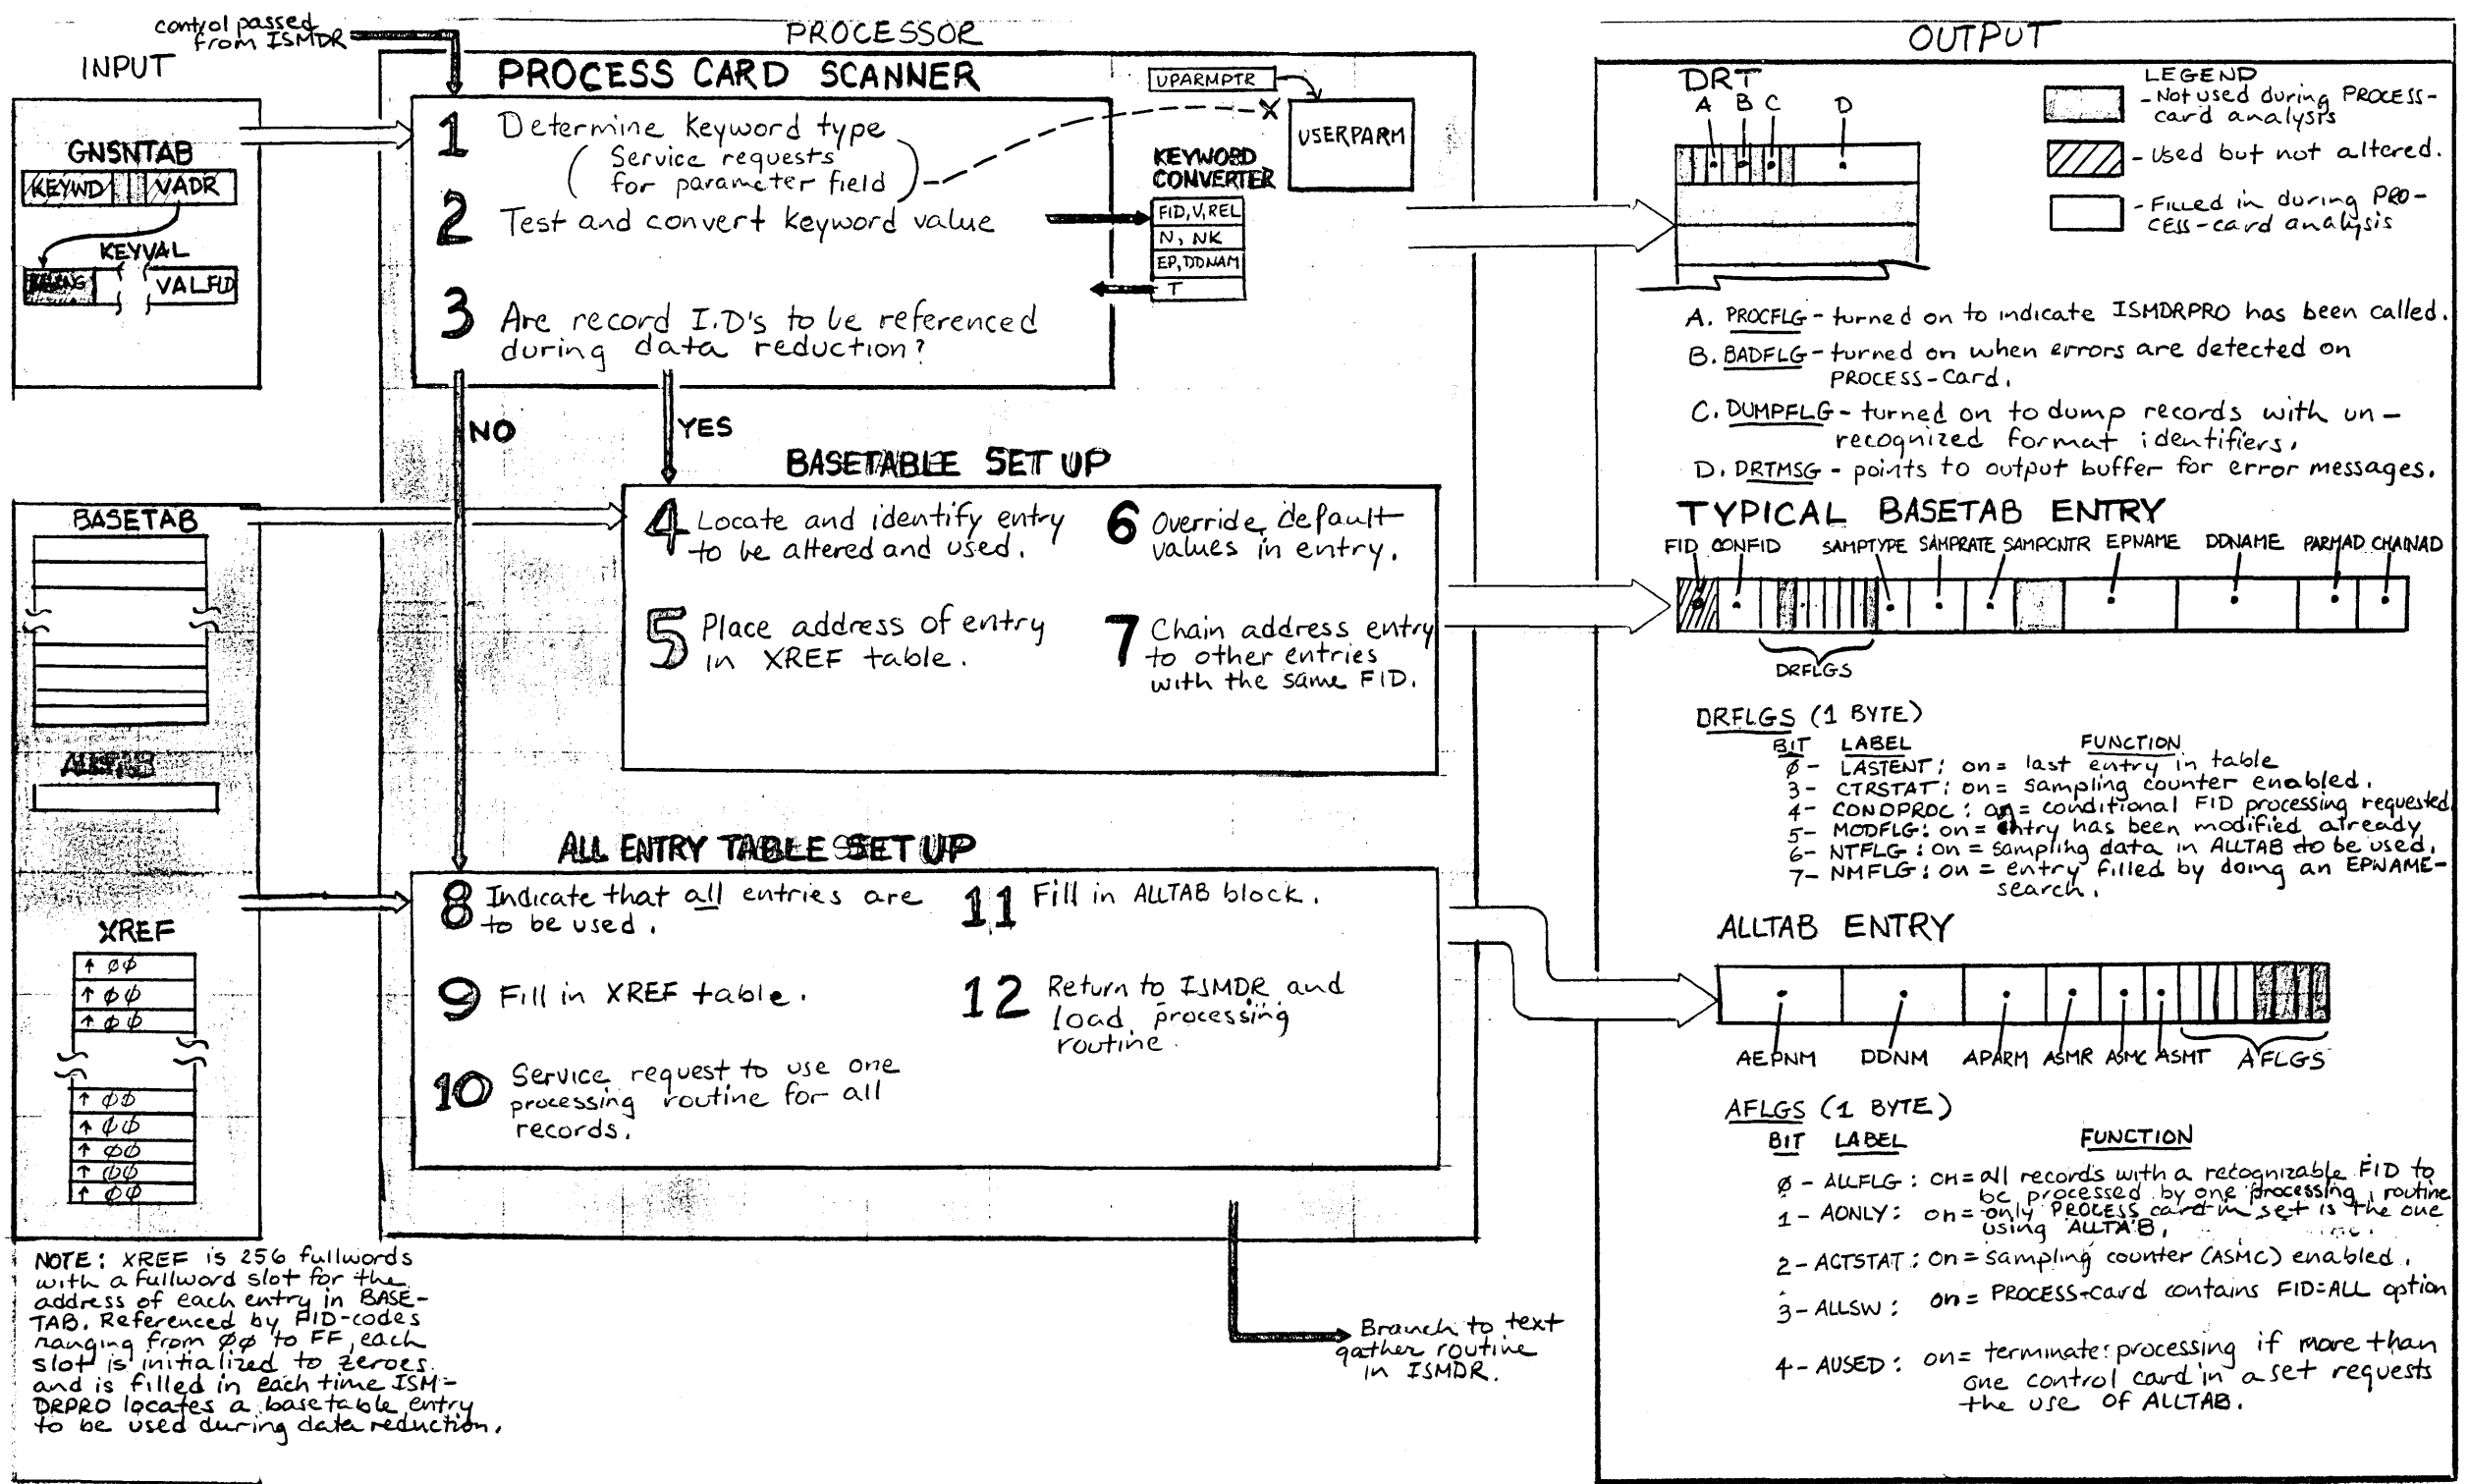 control passed
from ISMDR
INPUT
GNSNTAB
KEYWD VADR
KEYVAL
VALFLD
BASETAB
ALLTAB
XREF
↑ ØØ
↑ ØØ
↑ ØØ
↑ ØØ
↑ ØØ
↑ ØØ
↑ ØØ
↑ ØØ
NOTE: XREF is 256 fullwords
with a fullword slot for the
address of each entry in BASE-
TAB. Referenced by FID-codes
ranging from ØØ to FF, each
slot is initialized to zeroes
and is filled in each time ISM-
DRPRO locates a basetable entry
to be used during data reduction.
PROCESSOR
PROCESS CARD SCANNER
1 Determine Keyword type
(Service requests
for parameter field)
2 Test and convert keyword value
3 Are record I.D's to be referenced
during data reduction?
UPARMPTR
X
USERPARM
KEYWORD
CONVERTER
FID,V,REL
N, NK
EP,DDNAM
T
NO
YES
BASETABLE SET UP
4 Locate and identify entry
to be altered and used.
5 Place address of entry
in XREF table.
6 Override default
values in entry.
7 Chain address entry
to other entries
with the same FID.
ALL ENTRY TABLE SET UP
8 Indicate that all entries are
to be used.
9 Fill in XREF table.
10 Service request to use one
processing routine for all
records.
11 Fill in ALLTAB block.
12 Return to ISMDR and
load processing
routine.
Branch to text
gather routine
in ISMDR.
OUTPUT
DRT
A B C D
LEGEND
-Not used during PROCESS-
card analysis
- Used but not altered.
- Filled in during PRO-
CESS-card analysis
A. PROCFLG - turned on to indicate ISMDRPRO has been called.
B. BADFLG - turned on when errors are detected on
PROCESS-Card.
C. DUMPFLG - turned on to dump records with un-
recognized format identifiers.
D. DRTMSG - points to output buffer for error messages.
TYPICAL BASETAB ENTRY
FID CONFID SAMPTYPE SAMPRATE SAMPCNTR EPNAME DDNAME PARMAD CHAINAD
DRFLGS
DRFLGS (1 BYTE)
BIT LABEL FUNCTION
Ø- LASTENT: on= last entry in table
3- CTRSTAT: on= sampling counter enabled.
4- CONDPROC: on= conditional FID processing requested
5- MODFLG: on= entry has been modified already
6- NTFLG: on= sampling data in ALLTAB to be used.
7- NMFLG: on= entry filled by doing an EPNAME-
search.
ALLTAB ENTRY
AEPNM DDNM APARM ASMR ASMC ASMT AFLGS
AFLGS (1 BYTE)
BIT LABEL FUNCTION
Ø - ALLFLG: on= all records with a recognizable FID to
be processed by one processing routine
1- AONLY: on= only PROCESS card in set is the one
using ALLTAB.
2- ACTSTAT: on= sampling counter (ASMC) enabled.
3- ALLSW: on= PROCESS-card contains FID=ALL option
4- AUSED: on= terminate processing if more than
one control card in a set requests
the use of ALLTAB.